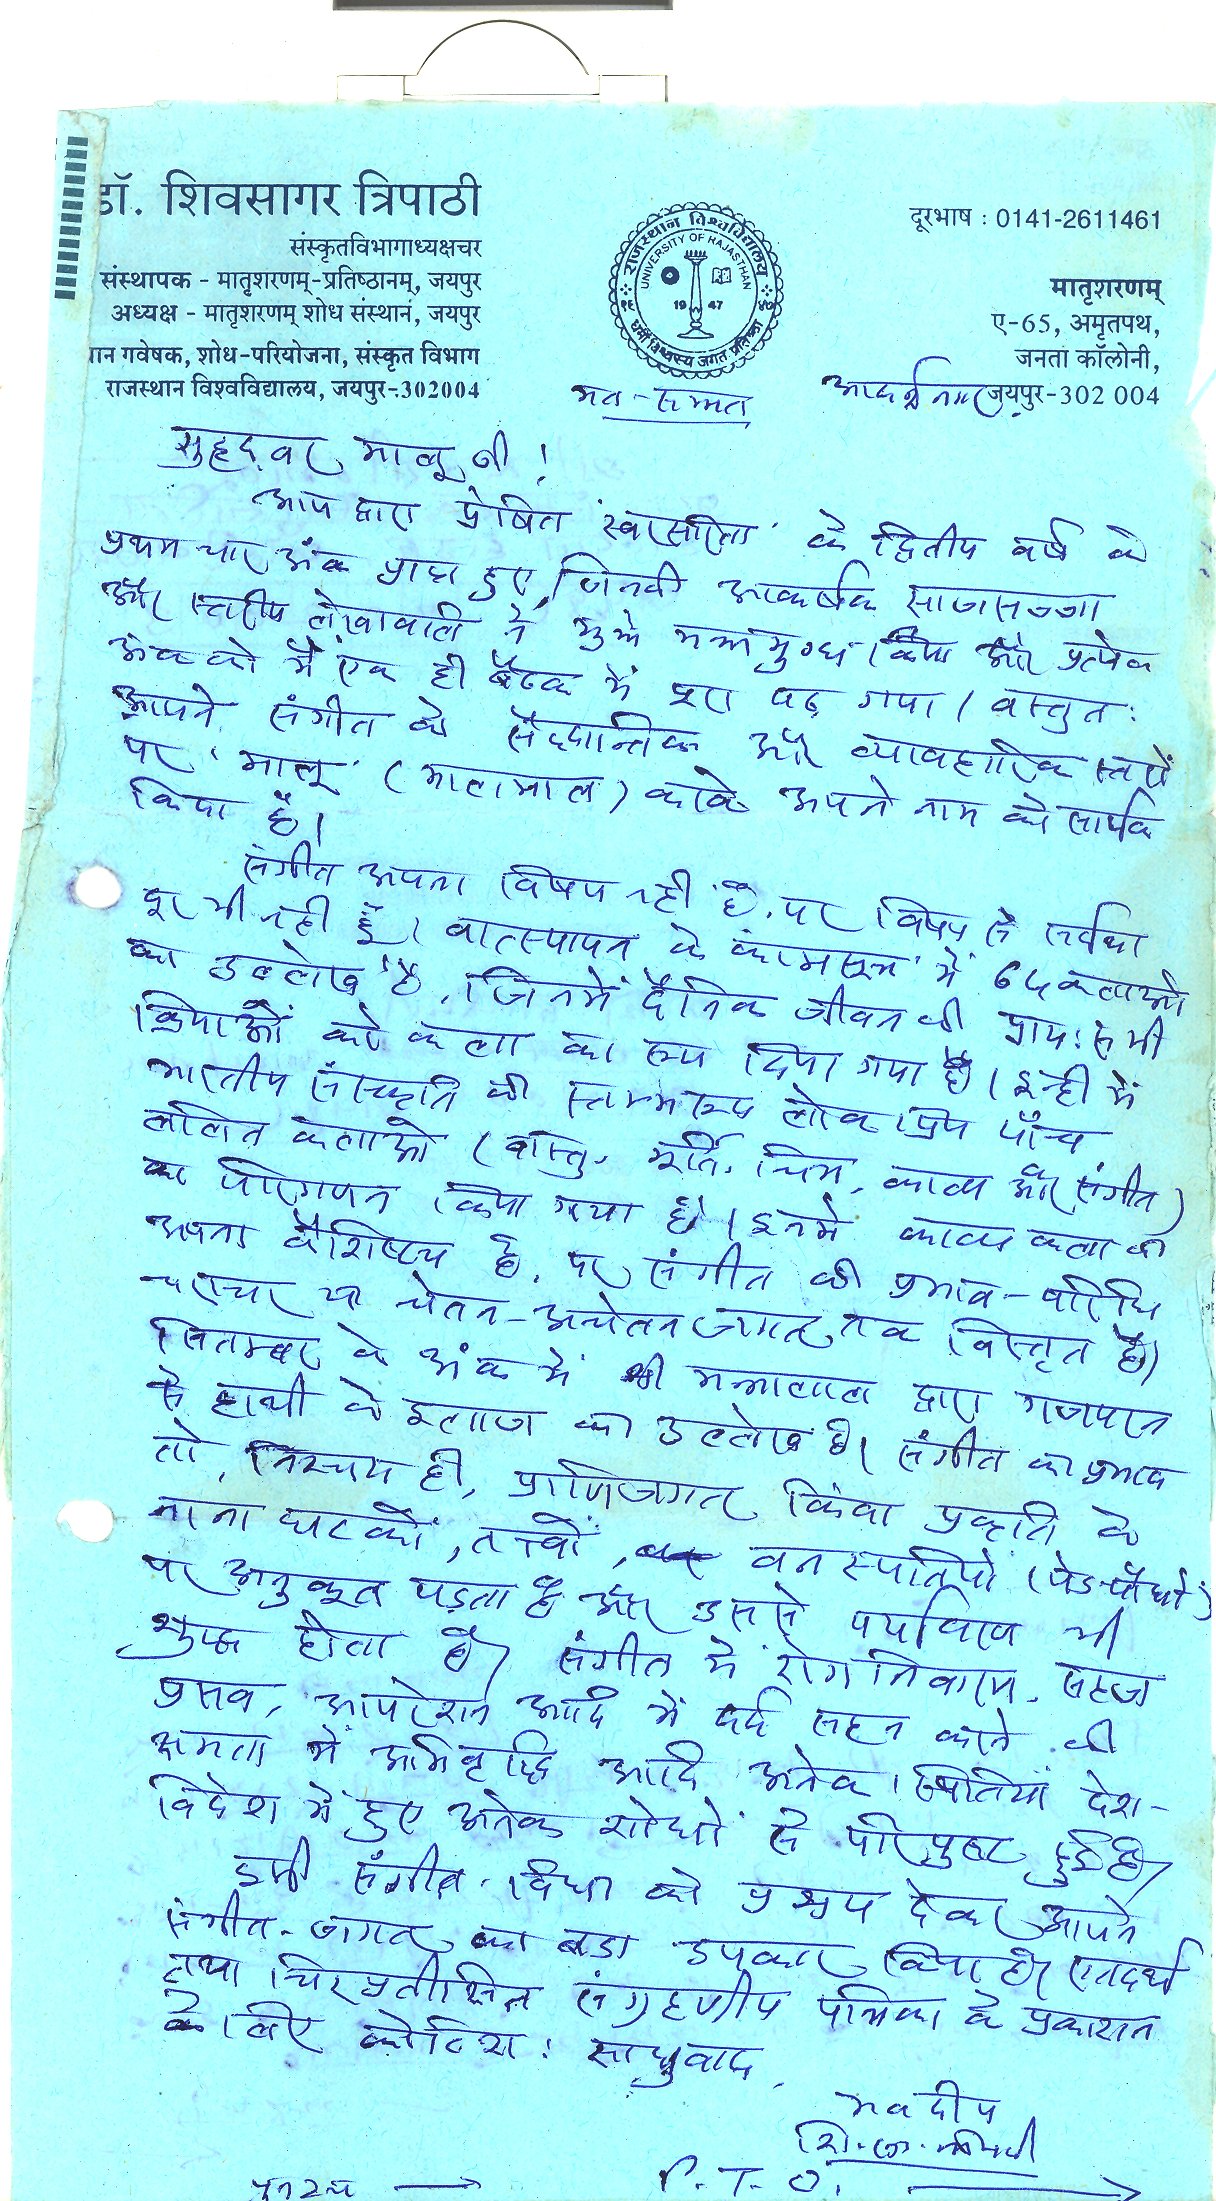 डॉ. शिवसागर त्रिपाठी
संस्कृतविभागाध्यक्षचर
संस्थापक - मातृशरणम्-प्रतिष्ठानम्, जयपुर
अध्यक्ष - मातृशरणम् शोध संस्थानं, जयपुर
ान गवेषक, शोध-परियोजना, संस्कृत विभाग
राजस्थान विश्वविद्यालय, जयपुर-302004
राजस्थान विश्वविद्यालय
UNIVERSITY OF RAJASTHAN
1947
धर्मो विश्वस्य जगतः प्रतिष्ठा
दूरभाष : 0141-2611461
मातृशरणम्
ए-65, अमृतपथ,
जनता कॉलोनी,
आदर्श नगर जयपुर-302 004
मत-सम्मत
सुहृद्वर मालू जी !
आप द्वारा प्रेषित 'स्वरसरिता' के द्वितीय वर्ष के
प्रथम चार अंक प्राप्त हुए, जिनकी आकर्षक साजसज्जा
और स्तरीय लेखावलि ने मुझे मन्त्रमुग्ध किया और प्रत्येक
अंक को मैं एक ही बैठक में पूरा पढ़ गया। वस्तुतः
आपने संगीत को सैद्धान्तिक और व्यावहारिक स्तरों
पर 'मालू' (मालामाल) करके अपने नाम को सार्थक
किया है।
संगीत अपना विषय नहीं है, पर विषय से सर्वथा
दूर भी नहीं हूँ। वात्स्यायन के 'कामसूत्र' में 64 कलाओं
का उल्लेख है, जिनमें दैनिक जीवन की प्रायः सभी
क्रियाओं को कला का रूप दिया गया है। इन्हीं में
भारतीय संस्कृति की स्तम्भरूप लोकप्रिय पाँच
ललित कलाओं (वास्तु, मूर्ति, चित्र, काव्य और संगीत)
का परिगणन किया गया है। इनमें काव्य कला का
अपना वैशिष्ट्य है, पर संगीत की प्रभाव-परिधि
चराचर या चेतन-अचेतन जगत् तक विस्तृत है।
सितम्बर के अंक में श्री मन्नालाल द्वारा गजपरन
से हाथी के इलाज का उल्लेख है। संगीत का प्रभाव
तो, निश्चय ही, प्राणिजगत् किंवा प्रकृति के
नाना घटकों, तत्त्वों, वनस्पतियों (पेड़-पौधों)
पर अनुकूल पड़ता है और उससे पर्यावरण भी
शुद्ध होता है। संगीत में रोग निवारण, सहज
प्रसव, आपरेशन आदि में दर्द सहन करने की
क्षमता में अभिवृद्धि आदि अनेक स्थितियां देश-
विदेश में हुए अनेक शोधों से परिपुष्ट हुई हैं।
इसी संगीत-विधा को प्रश्रय देकर आपने
संगीत-जगत् का बड़ा उपकार किया है। एतदर्थ
तथा चिरप्रतीक्षित संग्रहणीय पत्रिका के प्रकाशन
के लिए कोटिशः साधुवाद,
भवदीय
शि.सा. त्रिपाठी
पुनश्च → P.T.O. →